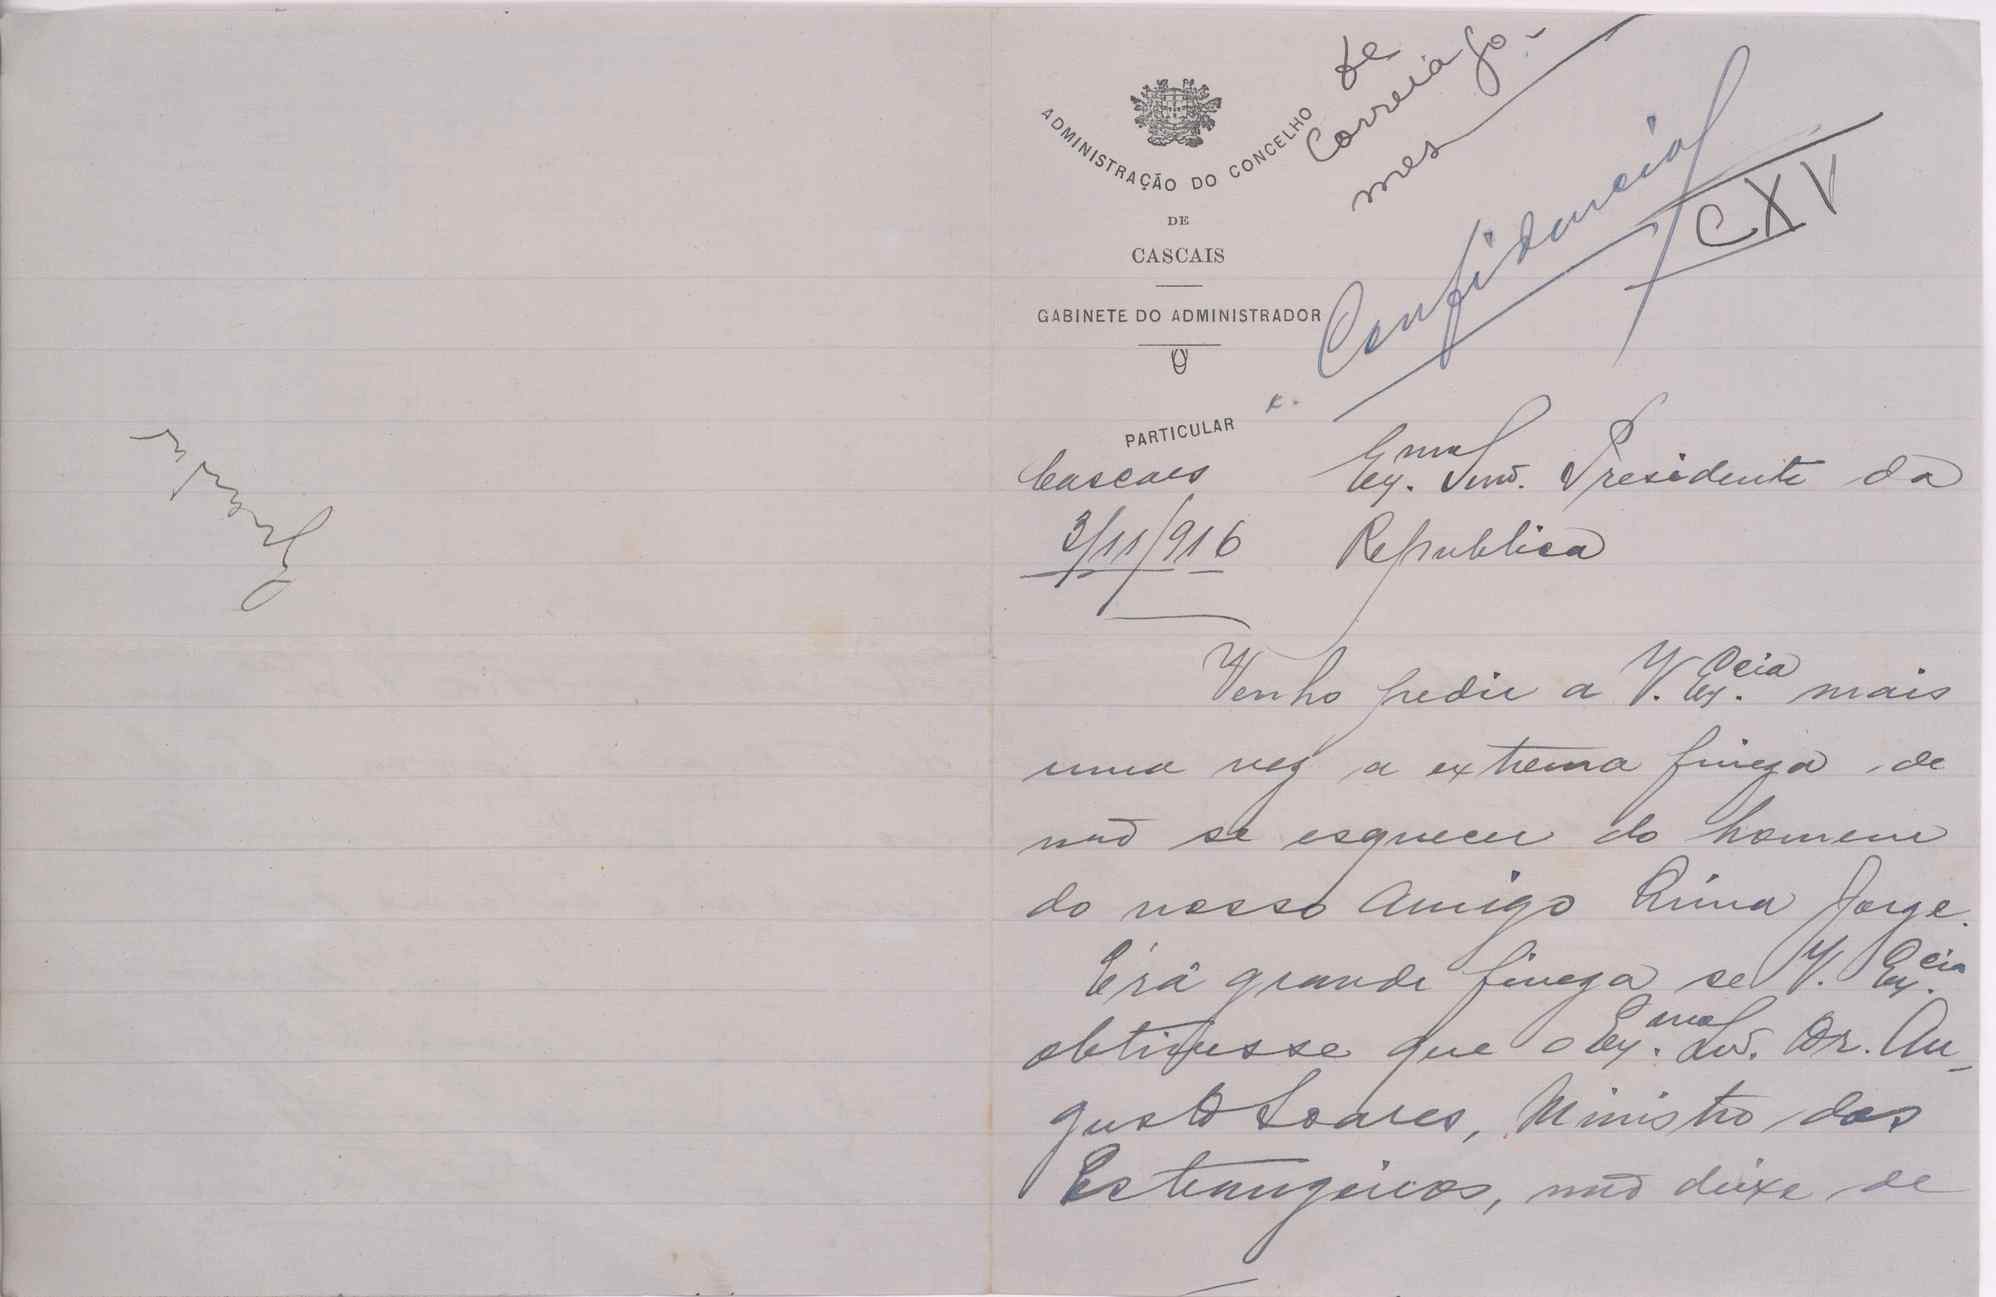 de
Correia Go-
mes
Confidencial
CXV
ADMINISTRAÇÃO DO CONCELHO
DE
CASCAIS
GABINETE DO ADMINISTRADOR
PARTICULAR
Cascaes
3/11/916
Ex.mo Snr. Presidente da
Republica
Venho pedir a V. Ex.cia mais
uma vez a extrema fineza de
não se esquecer do homem
do nosso amigo Lima Jorge.
Erá grande fineza se V. Ex.cia
obtivesse que o Ex.mo Snr. Dr. Au-
gusto Soares, Ministro dos
Estrangeiros, não deixe de